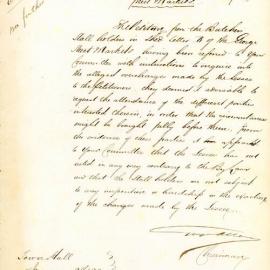 Meat Markets
no further
The Petition from the Butchers
Stall holders in the George
Street Markets having been referred to Your
Committee with instructions to inquire into
the alleged overcharges made by the Lessee
to the Petitioners they deemed it advisable to
request the attendance of the different parties
interested therein, in order that the circumstances
might be brought fully before them. From
the evidence of these parties it appeared
to Your Committee that the Lessee has not
acted in any way contrary to the Bye Laws
and that the Stall holders are not subject
to any imposition or hardship in the exaction
of the charges made by the Lessee.
Chairman
Town Hall